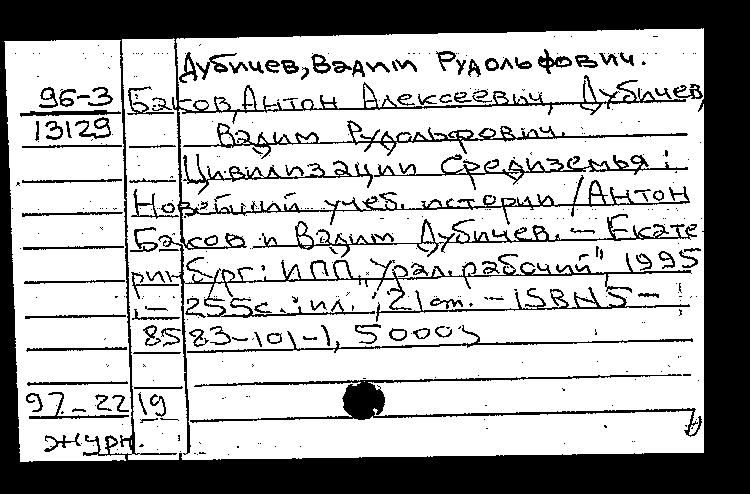 Дубичев, Вадим Рудольфович.
96-3 Баков, Антон Алексеевич, Дубичев,
13129 Вадим Рудольфович.
Цивилизации Средиземья :
Новейший учеб. истории / Антон
Баков и Вадим Дубичев. — Екате
ринбург : ИПП „Урал. рабочий", 1995
. — 255с. : ил. ; 21cm. — ISBN 5-
8583-101-1, 5000э
97-2219
журн.